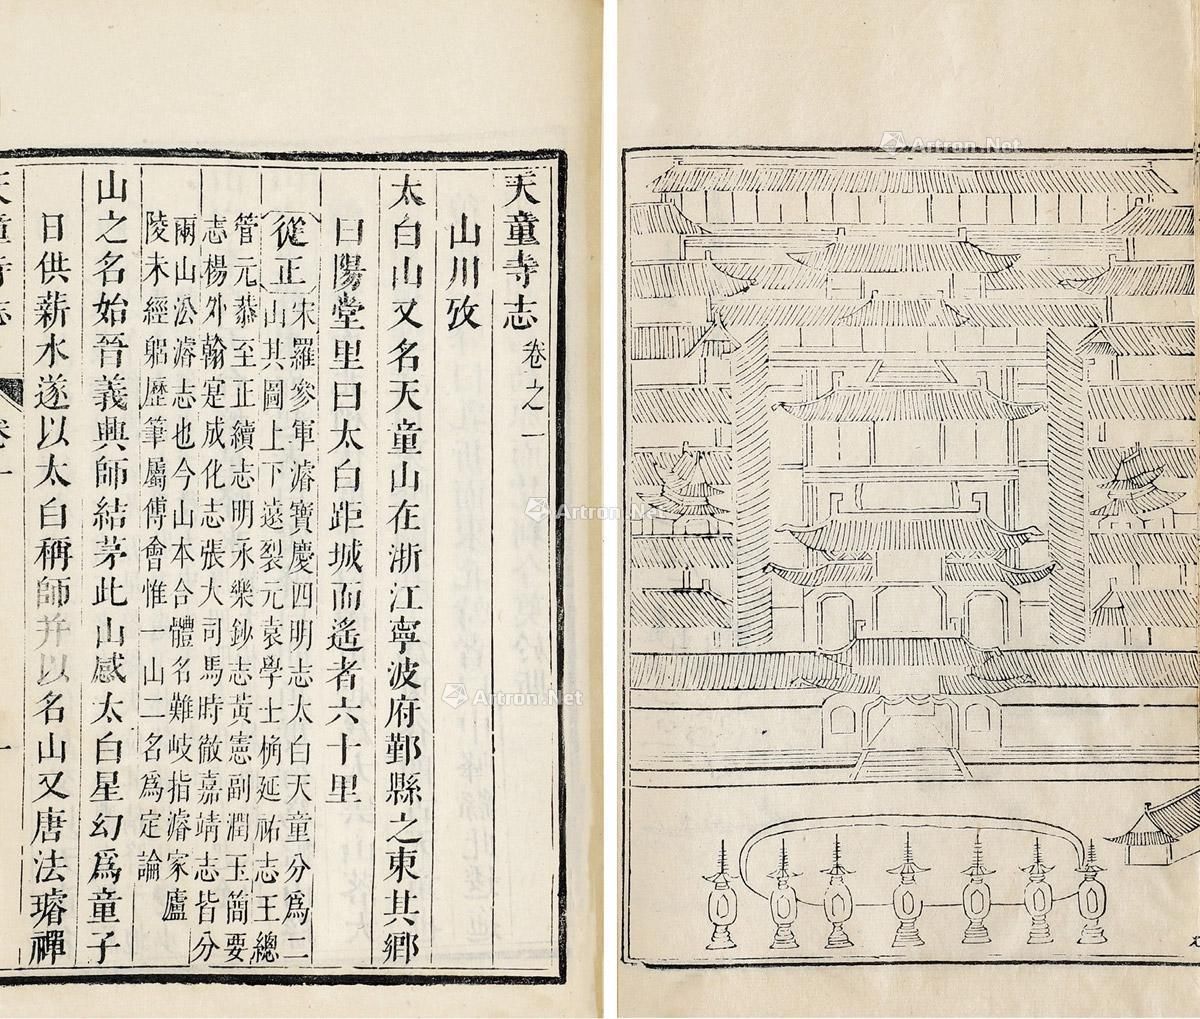 天童寺志卷之一
山川攷
太白山又名天童山在浙江寧波府鄞縣之東其鄉
曰陽堂里曰太白距城而遙者六十里
從正
宋羅參軍濬寶慶四明志太白天童分為二
山其圖上下遠裂元袁學士桷延祐志王總
管元恭至正續志明永樂鈔志黃憲副潤玉簡要
志楊外翰寔成化志張大司馬時徹嘉靖志皆分
兩山㳂濬志也今山本合體名難岐指濬家廬
陵未經躬歷筆屬傅會惟一山二名爲定論
山之名始晉義興師結茅此山感太白星幻爲童子
日供薪水遂以太白稱師并以名山又唐法璿禪
天童寺志
卷一
一
Artron.Net
Artron.Net
Artron.Net